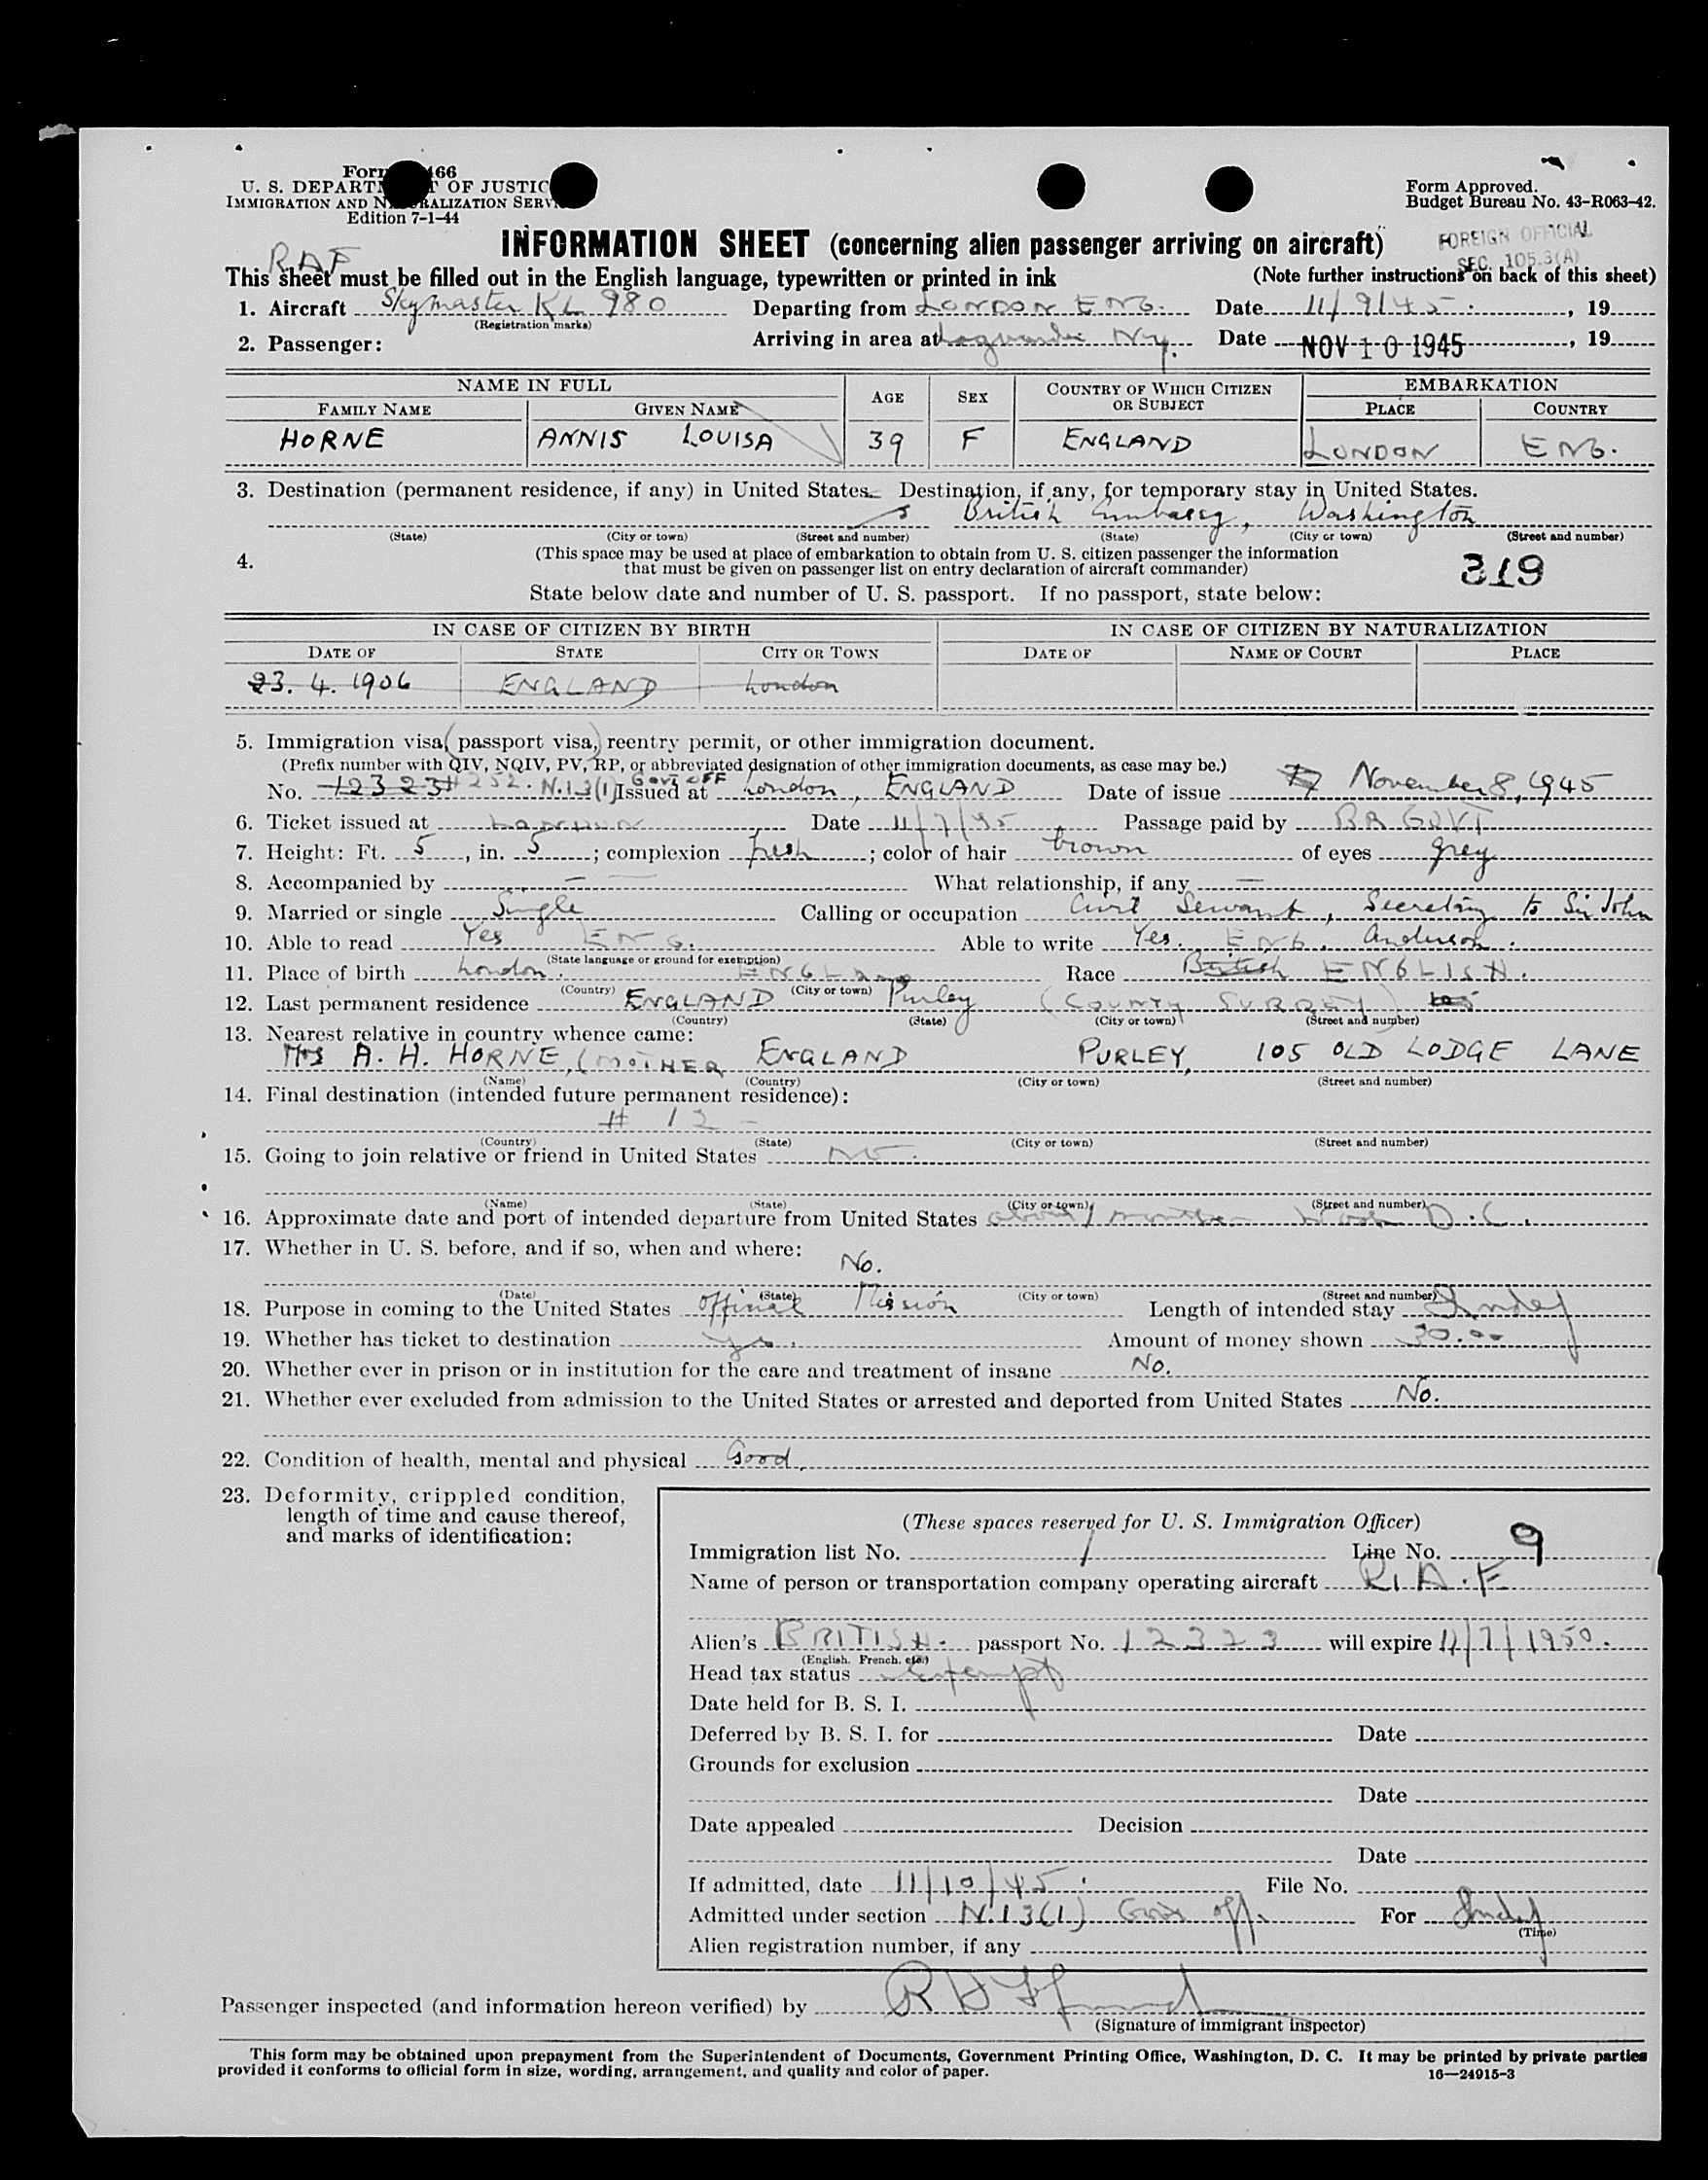 Form 466
U. S. DEPARTMENT OF JUSTICE
IMMIGRATION AND NATURALIZATION SERVICE
Edition 7-1-44
Form Approved.
Budget Bureau No. 43-R063-42.
FOREIGN OFFICIAL
SEC. 105.3(A)
INFORMATION SHEET (concerning alien passenger arriving on aircraft)
RAF
This sheet must be filled out in the English language, typewritten or printed in ink (Note further instructions on back of this sheet)
1. Aircraft Skymaster KL 980 Departing from LONDON ENG. Date 11/9/45, 19
(Registration marks)
2. Passenger: Arriving in area at Laguardia N.Y. Date NOV 10 1945, 19
NAME IN FULL AGE SEX COUNTRY OF WHICH CITIZEN OR SUBJECT EMBARKATION
FAMILY NAME GIVEN NAME PLACE COUNTRY
HORNE ANNIS LOUISA 39 F ENGLAND LONDON ENG.
3. Destination (permanent residence, if any) in United States. Destination, if any, for temporary stay in United States.
British Embassy, Washington
(State) (City or town) (Street and number) (State) (City or town) (Street and number)
4. (This space may be used at place of embarkation to obtain from U. S. citizen passenger the information
that must be given on passenger list on entry declaration of aircraft commander)
319
State below date and number of U. S. passport. If no passport, state below:
IN CASE OF CITIZEN BY BIRTH IN CASE OF CITIZEN BY NATURALIZATION
DATE OF STATE CITY OR TOWN DATE OF NAME OF COURT PLACE
23. 4. 1906 ENGLAND London
5. Immigration visa, (passport visa,) reentry permit, or other immigration document.
(Prefix number with QIV, NQIV, PV, RP, or abbreviated designation of other immigration documents, as case may be.)
No. 12323 # 252. N.13(1) GOVT OFF Issued at London, ENGLAND Date of issue November 8, 1945
6. Ticket issued at LONDON Date 11/7/45 Passage paid by BR GOVT
7. Height: Ft. 5, in. 5; complexion fresh; color of hair brown of eyes grey
8. Accompanied by — What relationship, if any —
9. Married or single Single Calling or occupation Civil Servant, Secretary to Sir John
10. Able to read Yes ENG. Able to write Yes. ENG. Anderson.
(State language or ground for exemption)
11. Place of birth London. ENGLAND Race British ENGLISH.
(Country) (City or town)
12. Last permanent residence ENGLAND Purley (COUNTY SURREY)
(Country) (State) (City or town) (Street and number)
13. Nearest relative in country whence came:
Mrs A. H. HORNE, (MOTHER ENGLAND PURLEY, 105 OLD LODGE LANE
(Name) (Country) (City or town) (Street and number)
14. Final destination (intended future permanent residence):
# 12 -
(Country) (State) (City or town) (Street and number)
15. Going to join relative or friend in United States NO.
(Name) (State) (City or town) (Street and number)
16. Approximate date and port of intended departure from United States about 1 month Wash D.C.
17. Whether in U. S. before, and if so, when and where:
No.
(Date) (State) (City or town) (Street and number)
18. Purpose in coming to the United States Official Mission Length of intended stay Indef
19. Whether has ticket to destination yes. Amount of money shown 30.00
20. Whether ever in prison or in institution for the care and treatment of insane No.
21. Whether ever excluded from admission to the United States or arrested and deported from United States No.
22. Condition of health, mental and physical Good.
23. Deformity, crippled condition,
length of time and cause thereof,
and marks of identification:
(These spaces reserved for U. S. Immigration Officer)
Immigration list No. 1 Line No. 9
Name of person or transportation company operating aircraft R.A.F
Alien's BRITISH. passport No. 12323 will expire 11/7/1950.
(English. French. etc.)
Head tax status Exempt
Date held for B. S. I.
Deferred by B. S. I. for Date
Grounds for exclusion
Date
Date appealed Decision
Date
If admitted, date 11/10/45. File No.
Admitted under section N.13(1) Govt off. For Indef
(Time)
Alien registration number, if any
Passenger inspected (and information hereon verified) by
(Signature of immigrant inspector)
This form may be obtained upon prepayment from the Superintendent of Documents, Government Printing Office, Washington, D. C. It may be printed by private parties
provided it conforms to official form in size, wording, arrangement, and quality and color of paper.
16—24915-3